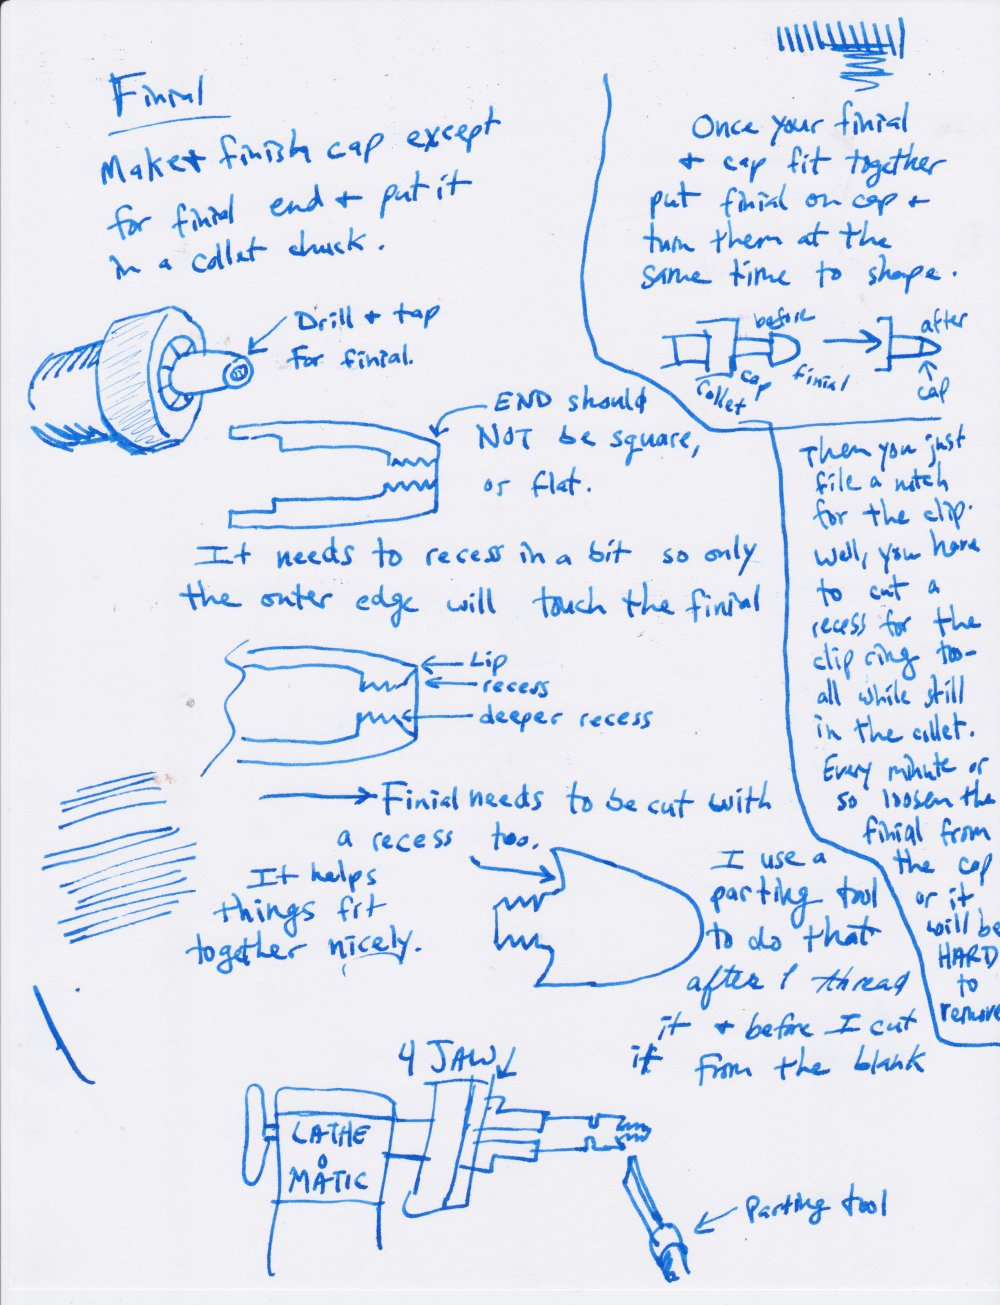 Finial
Make + finish cap except
for finial end + put it
in a collet chuck.
Drill + tap
For finial.
END should
NOT be square,
or flat.
It needs to recess in a bit so only
the outer edge will touch the finial
Lip
recess
deeper recess
Finial needs to be cut with
a recess too.
It helps
things fit
together nicely.
I use a
parting tool
to do that
after I thread
it + before I cut
it from the blank
4 JAW
LATHE
O
MATIC
Parting tool
Once your finial
+ cap fit together
put finial on cap +
turn them at the
same time to shape.
before
after
collet
cap
finial
cap
Then you just
file a notch
for the clip.
Well, you have
to cut a
recess for the
clip ring too-
all while still
in the collet.
Every minute or
so loosen the
finial from
the cap
or it
will be
HARD
to
remove